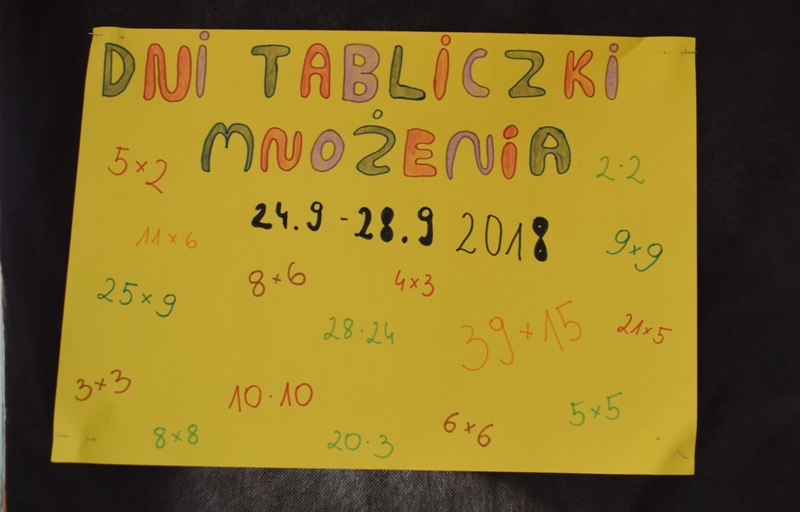 DNI TABLICZKI
MNOŻENIA
5×2
2·2
24.9 - 28.9 2018
11×6
9×9
25×9
8+6
4×3
28·24
39+15
21×5
3×3
10·10
8×8
20·3
6×6
5×5